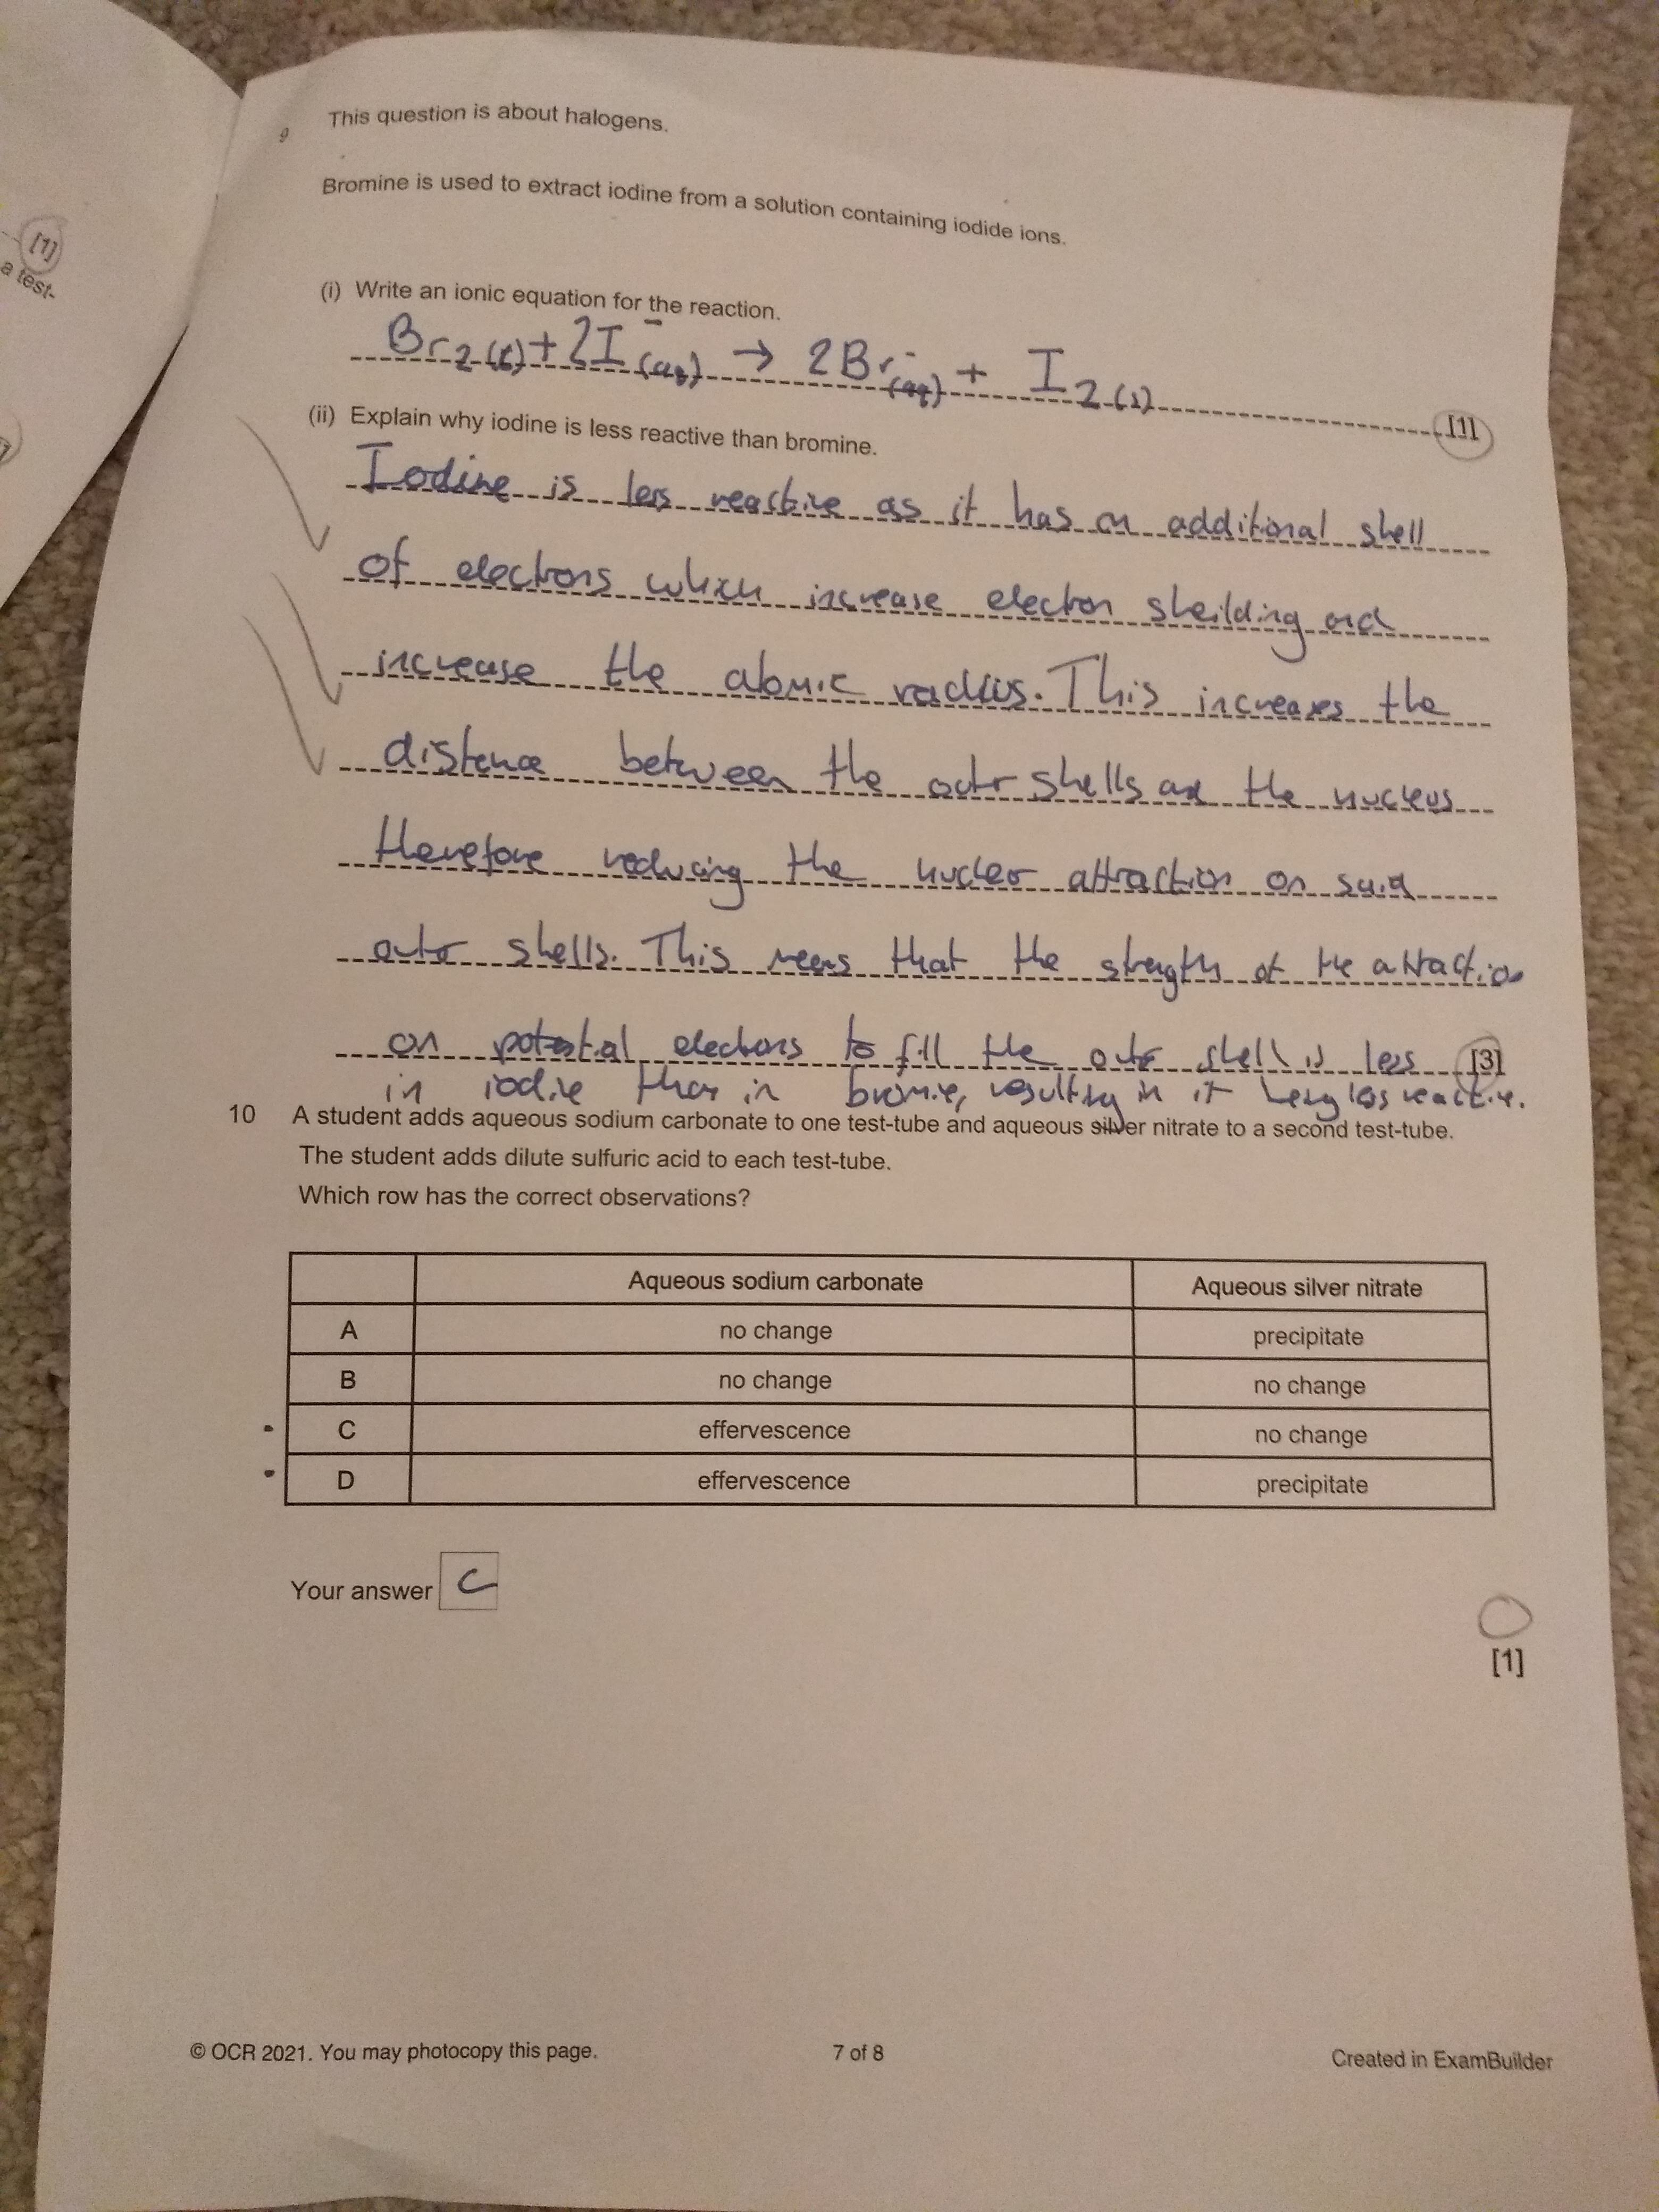 [1]
a test-
9
This question is about halogens.
Bromine is used to extract iodine from a solution containing iodide ions.
(i) Write an ionic equation for the reaction.
Br2(l) + 2I-(aq) → 2Br-(aq) + I2(s)
[1]
(ii) Explain why iodine is less reactive than bromine.
Iodine is less reactive as it has an additional shell
of electrons which increase electron sheilding and
increase the atomic radius. This increases the
distance between the outer shells and the nucleus
therefore reducing the nuclear attraction on said
outer shells. This means that the strength of the attraction
on potential electrons to fill the outer shell is less [3]
in iodine than in bromine, resulting in it being less reactive.
10 A student adds aqueous sodium carbonate to one test-tube and aqueous silver nitrate to a second test-tube.
The student adds dilute sulfuric acid to each test-tube.
Which row has the correct observations?
Aqueous sodium carbonate Aqueous silver nitrate
A no change precipitate
B no change no change
C effervescence no change
D effervescence precipitate
Your answer C
[1]
© OCR 2021. You may photocopy this page. 7 of 8 Created in ExamBuilder